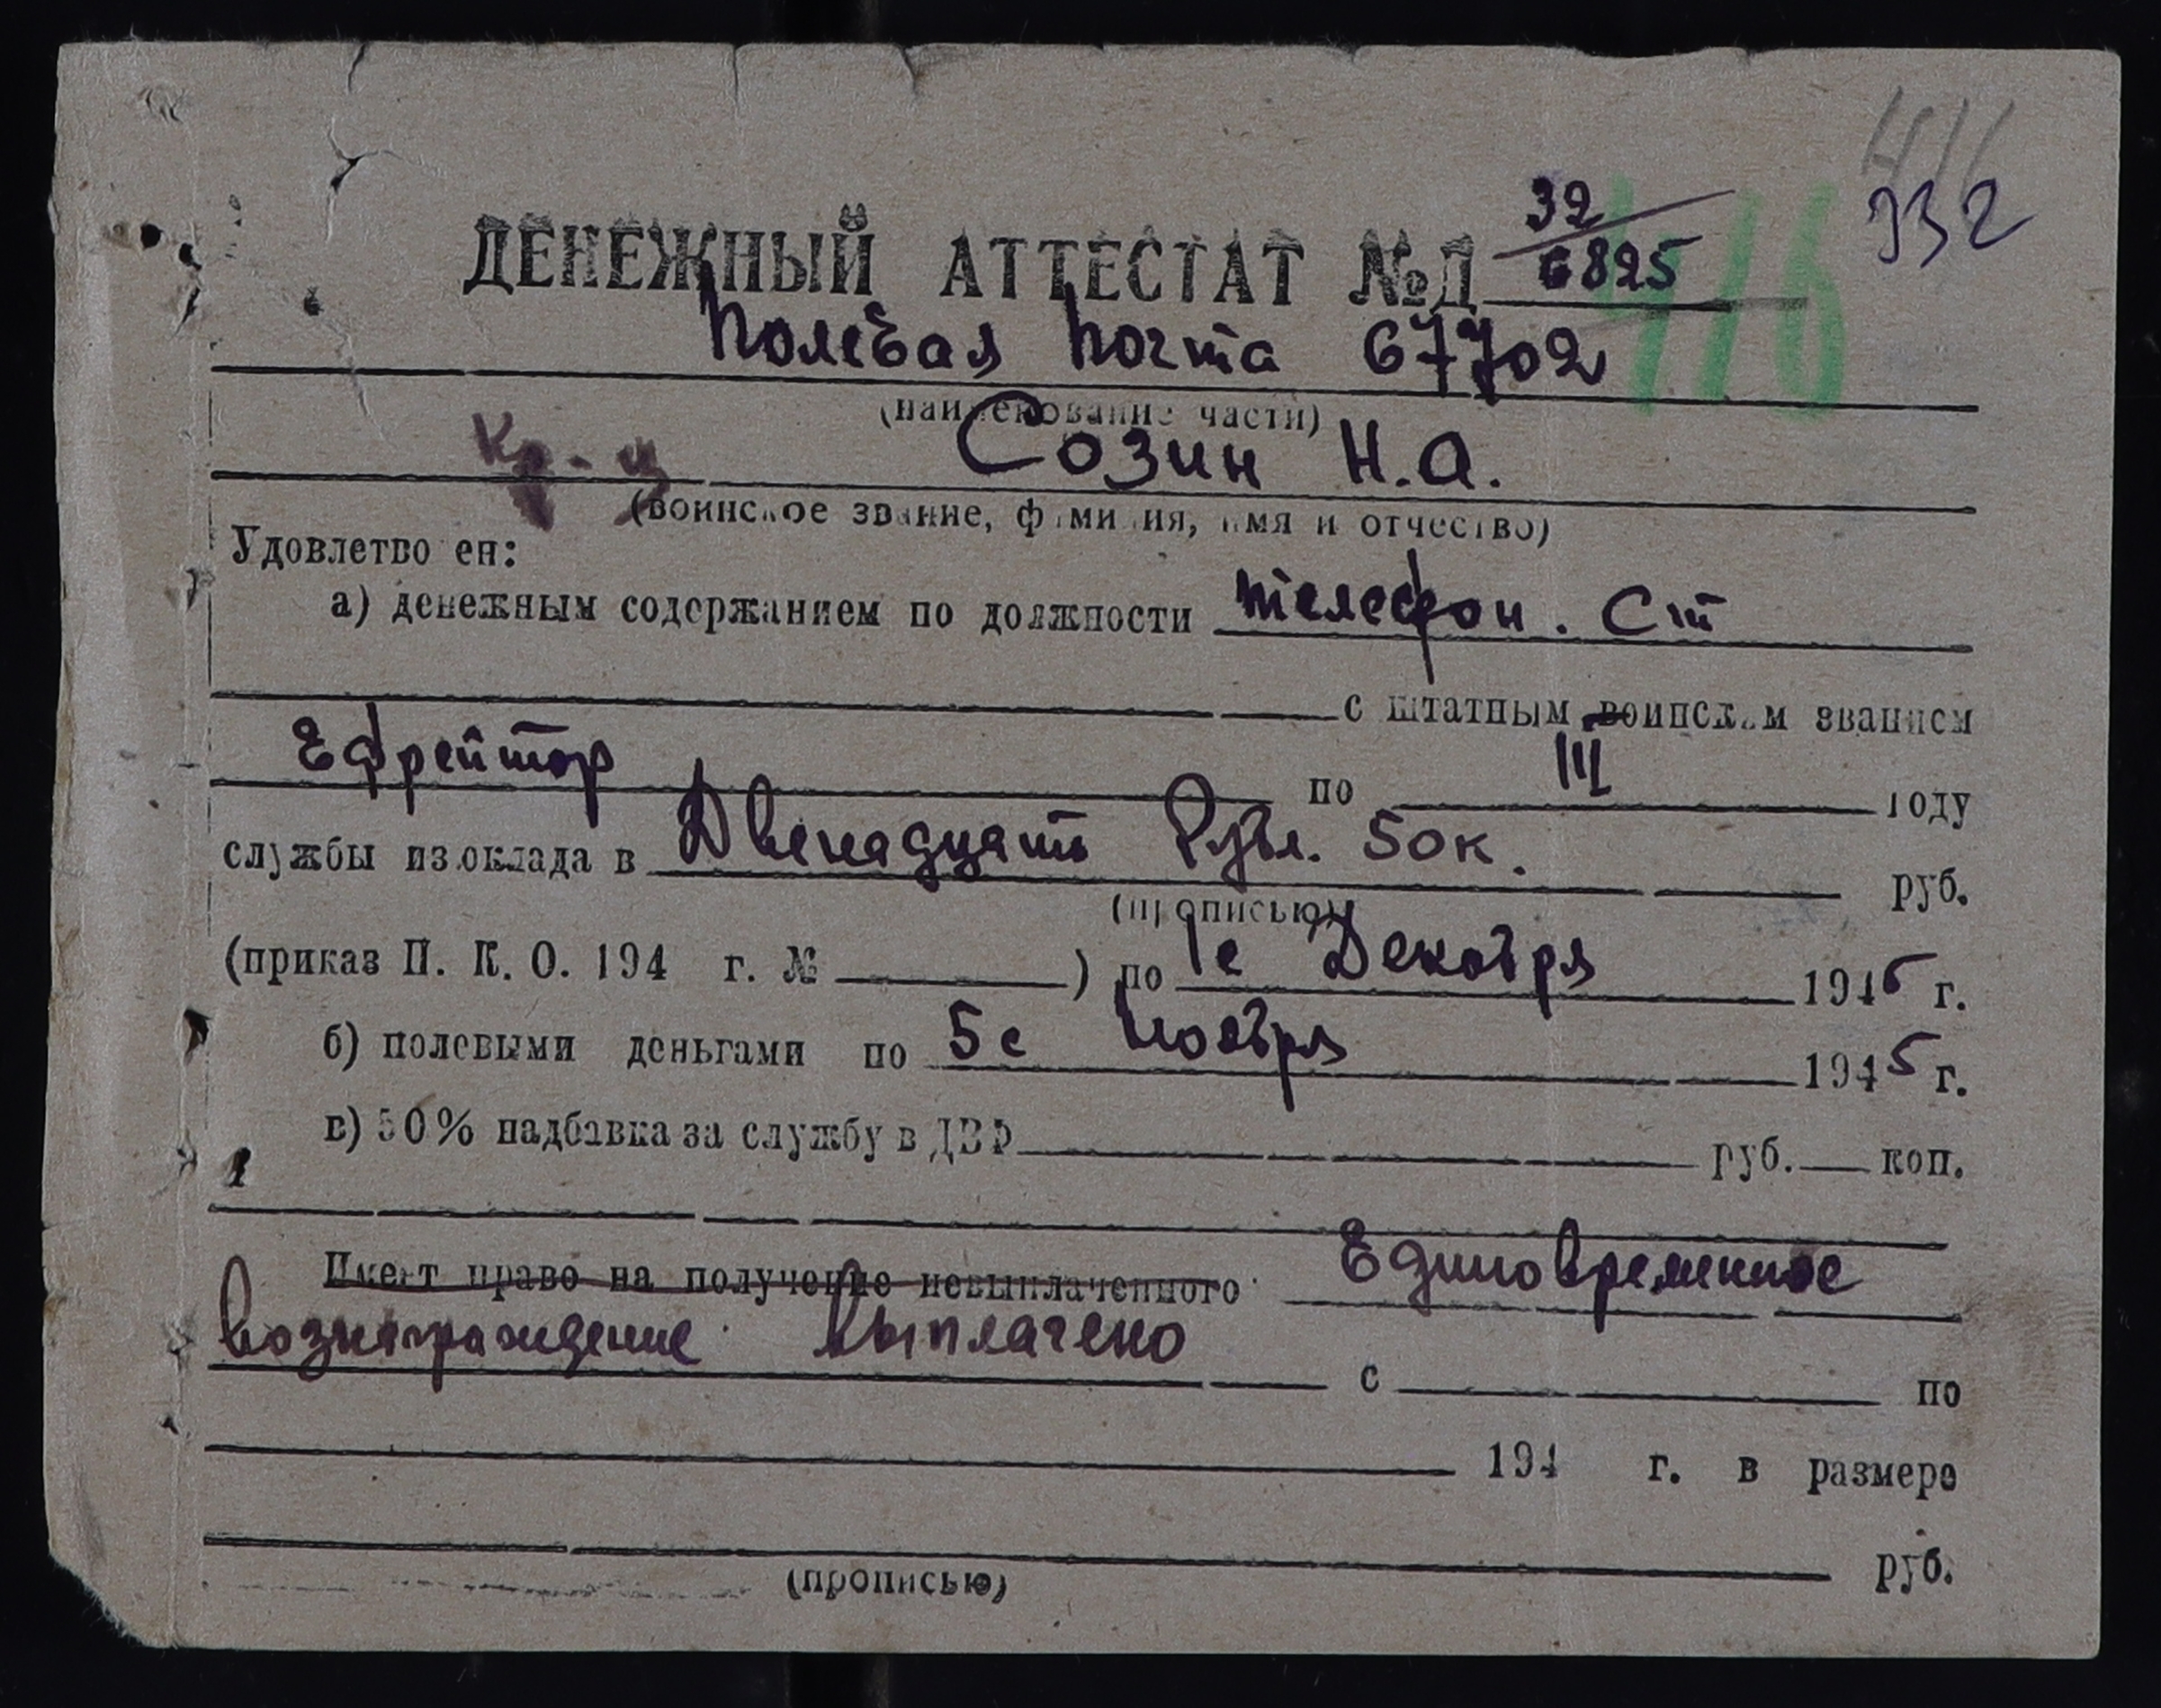 416
332
416
ДЕНЕЖНЫЙ АТТЕСТАТ №Д 32/6825
Полевая почта 67702
(наименование части)
Кр-ц Созин Н.А.
(воинское звание, фамилия, имя и отчество)
Удовлетворен:
а) денежным содержанием по должности телефон. Ст
с штатным воинским званием
Ефрейтор по III году
службы из оклада в Двенадцать Рубл. 50к. руб.
(прописью)
(приказ П. К. О. 194 г. № ) по 1е Декабря 1945 г.
б) полевыми деньгами по 5е Ноября 1945 г.
в) 50% надбавка за службу в ДВФ руб. коп.
Имеет право на получение невыплаченного Единовременное
вознаграждение выплачено с по
194 г. в размере
руб.
(прописью)